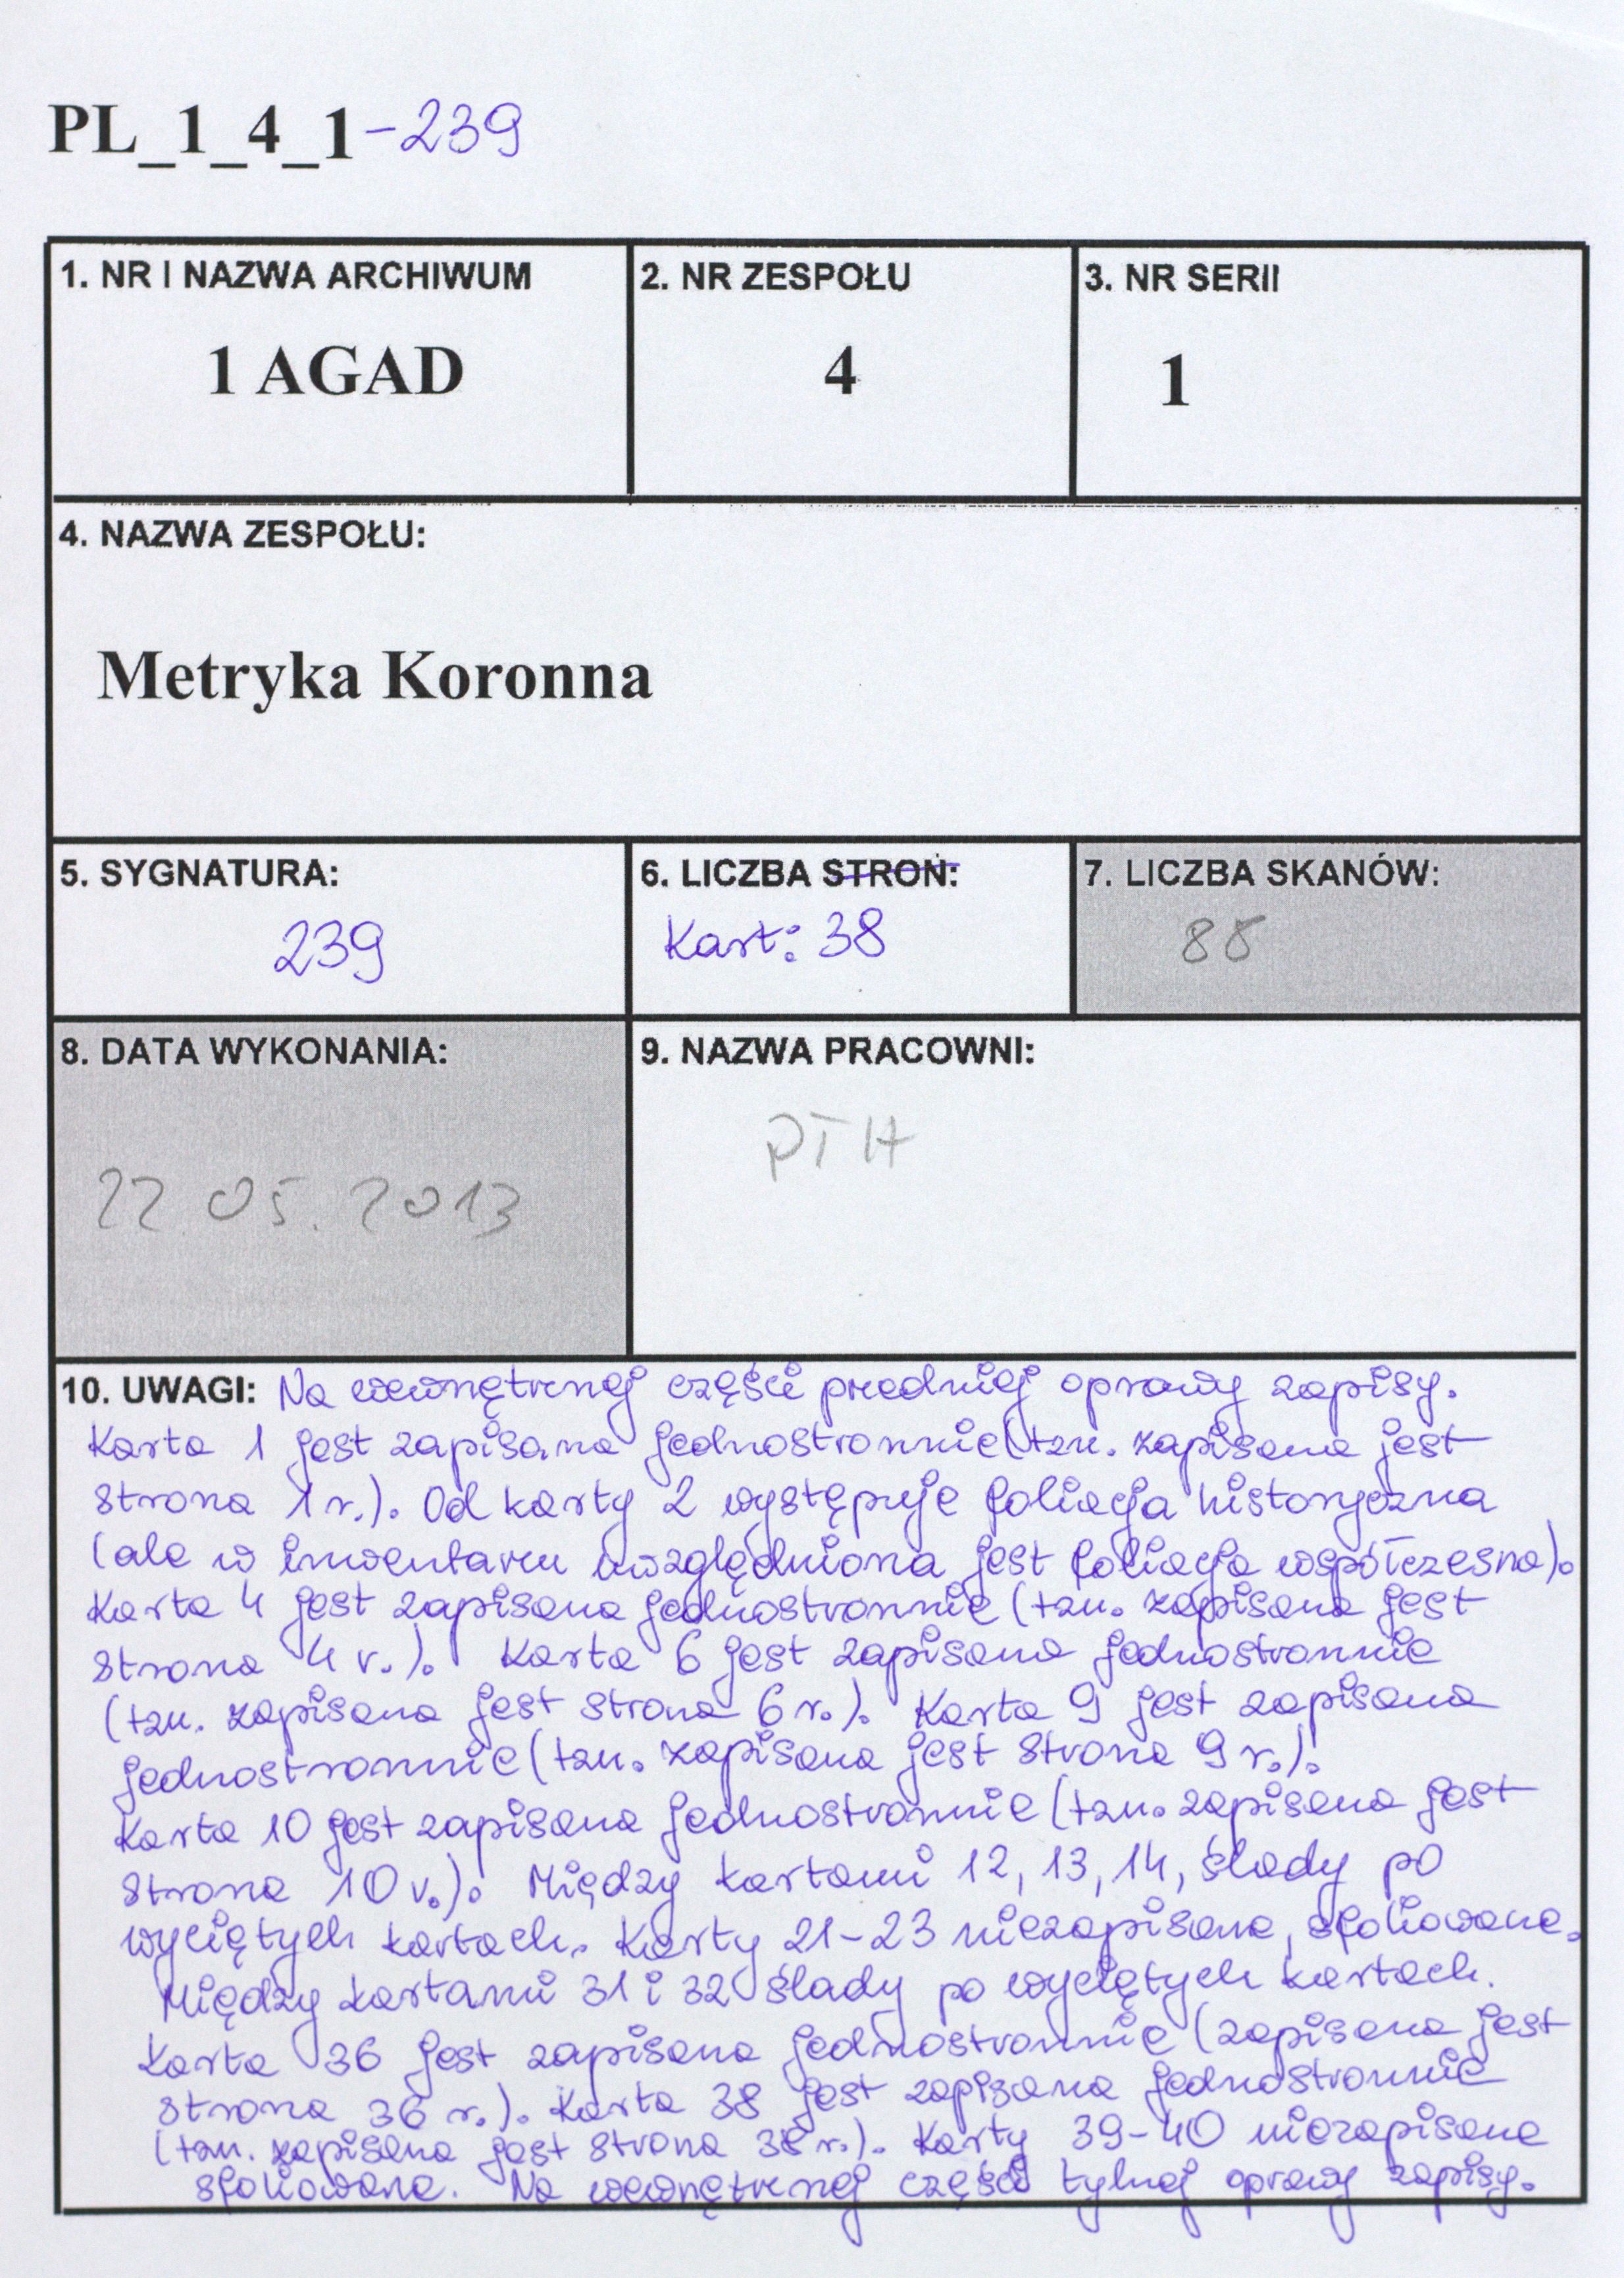 PL_1_4_1-239
1. NR I NAZWA ARCHIWUM
1 AGAD
2. NR ZESPOŁU
4
3. NR SERII
1
4. NAZWA ZESPOŁU:
Metryka Koronna
5. SYGNATURA:
239
6. LICZBA STRON:
Kart: 38
7. LICZBA SKANÓW:
88
8. DATA WYKONANIA:
22 05. 2013
9. NAZWA PRACOWNI:
PTH
10. UWAGI: Na wewnętrznej części przedniej oprawy zapisy.
Karta 1 jest zapisana jednostronnie (tzn. zapisana jest
strona 1 r.). Od karty 2 występuje foliacja historyczna
(ale w inwentarzu uwzględniona jest foliacja współczesna).
Karta 4 jest zapisana jednostronnie (tzn. zapisana jest
strona 4 v.). Karta 6 jest zapisana jednostronnie
(tzn. zapisana jest strona 6 r.). Karta 9 jest zapisana
jednostronnie (tzn. zapisana jest strona 9 r.).
Karta 10 jest zapisana jednostronnie (tzn. zapisana jest
strona 10 v.). Między kartami 12, 13, 14, ślady po
wyciętych kartach. Karty 21-23 niezapisane, sfoliowane.
Między kartami 31 i 32 ślady po wyciętych kartach.
Karta 36 jest zapisana jednostronnie (zapisana jest
strona 36 r.). Karta 38 jest zapisana jednostronnie
(tzn. zapisana jest strona 38 r.). Karty 39-40 niezapisane
sfoliowane. Na wewnętrznej części tylnej oprawy zapisy.